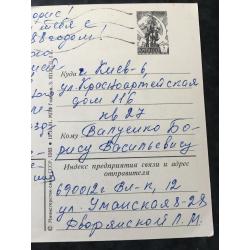 орис!
тебя с
88 годом!
Куда г. Киев-6,
ул. Красноармейская
дом 116
кв 27
Кому Вапушко Бо-
рису Васильевичу
Индекс предприятия связи и адрес
отправителя
690012 Вл-к, 12
ул. Уманская 8-28
Дворянской Л. М.